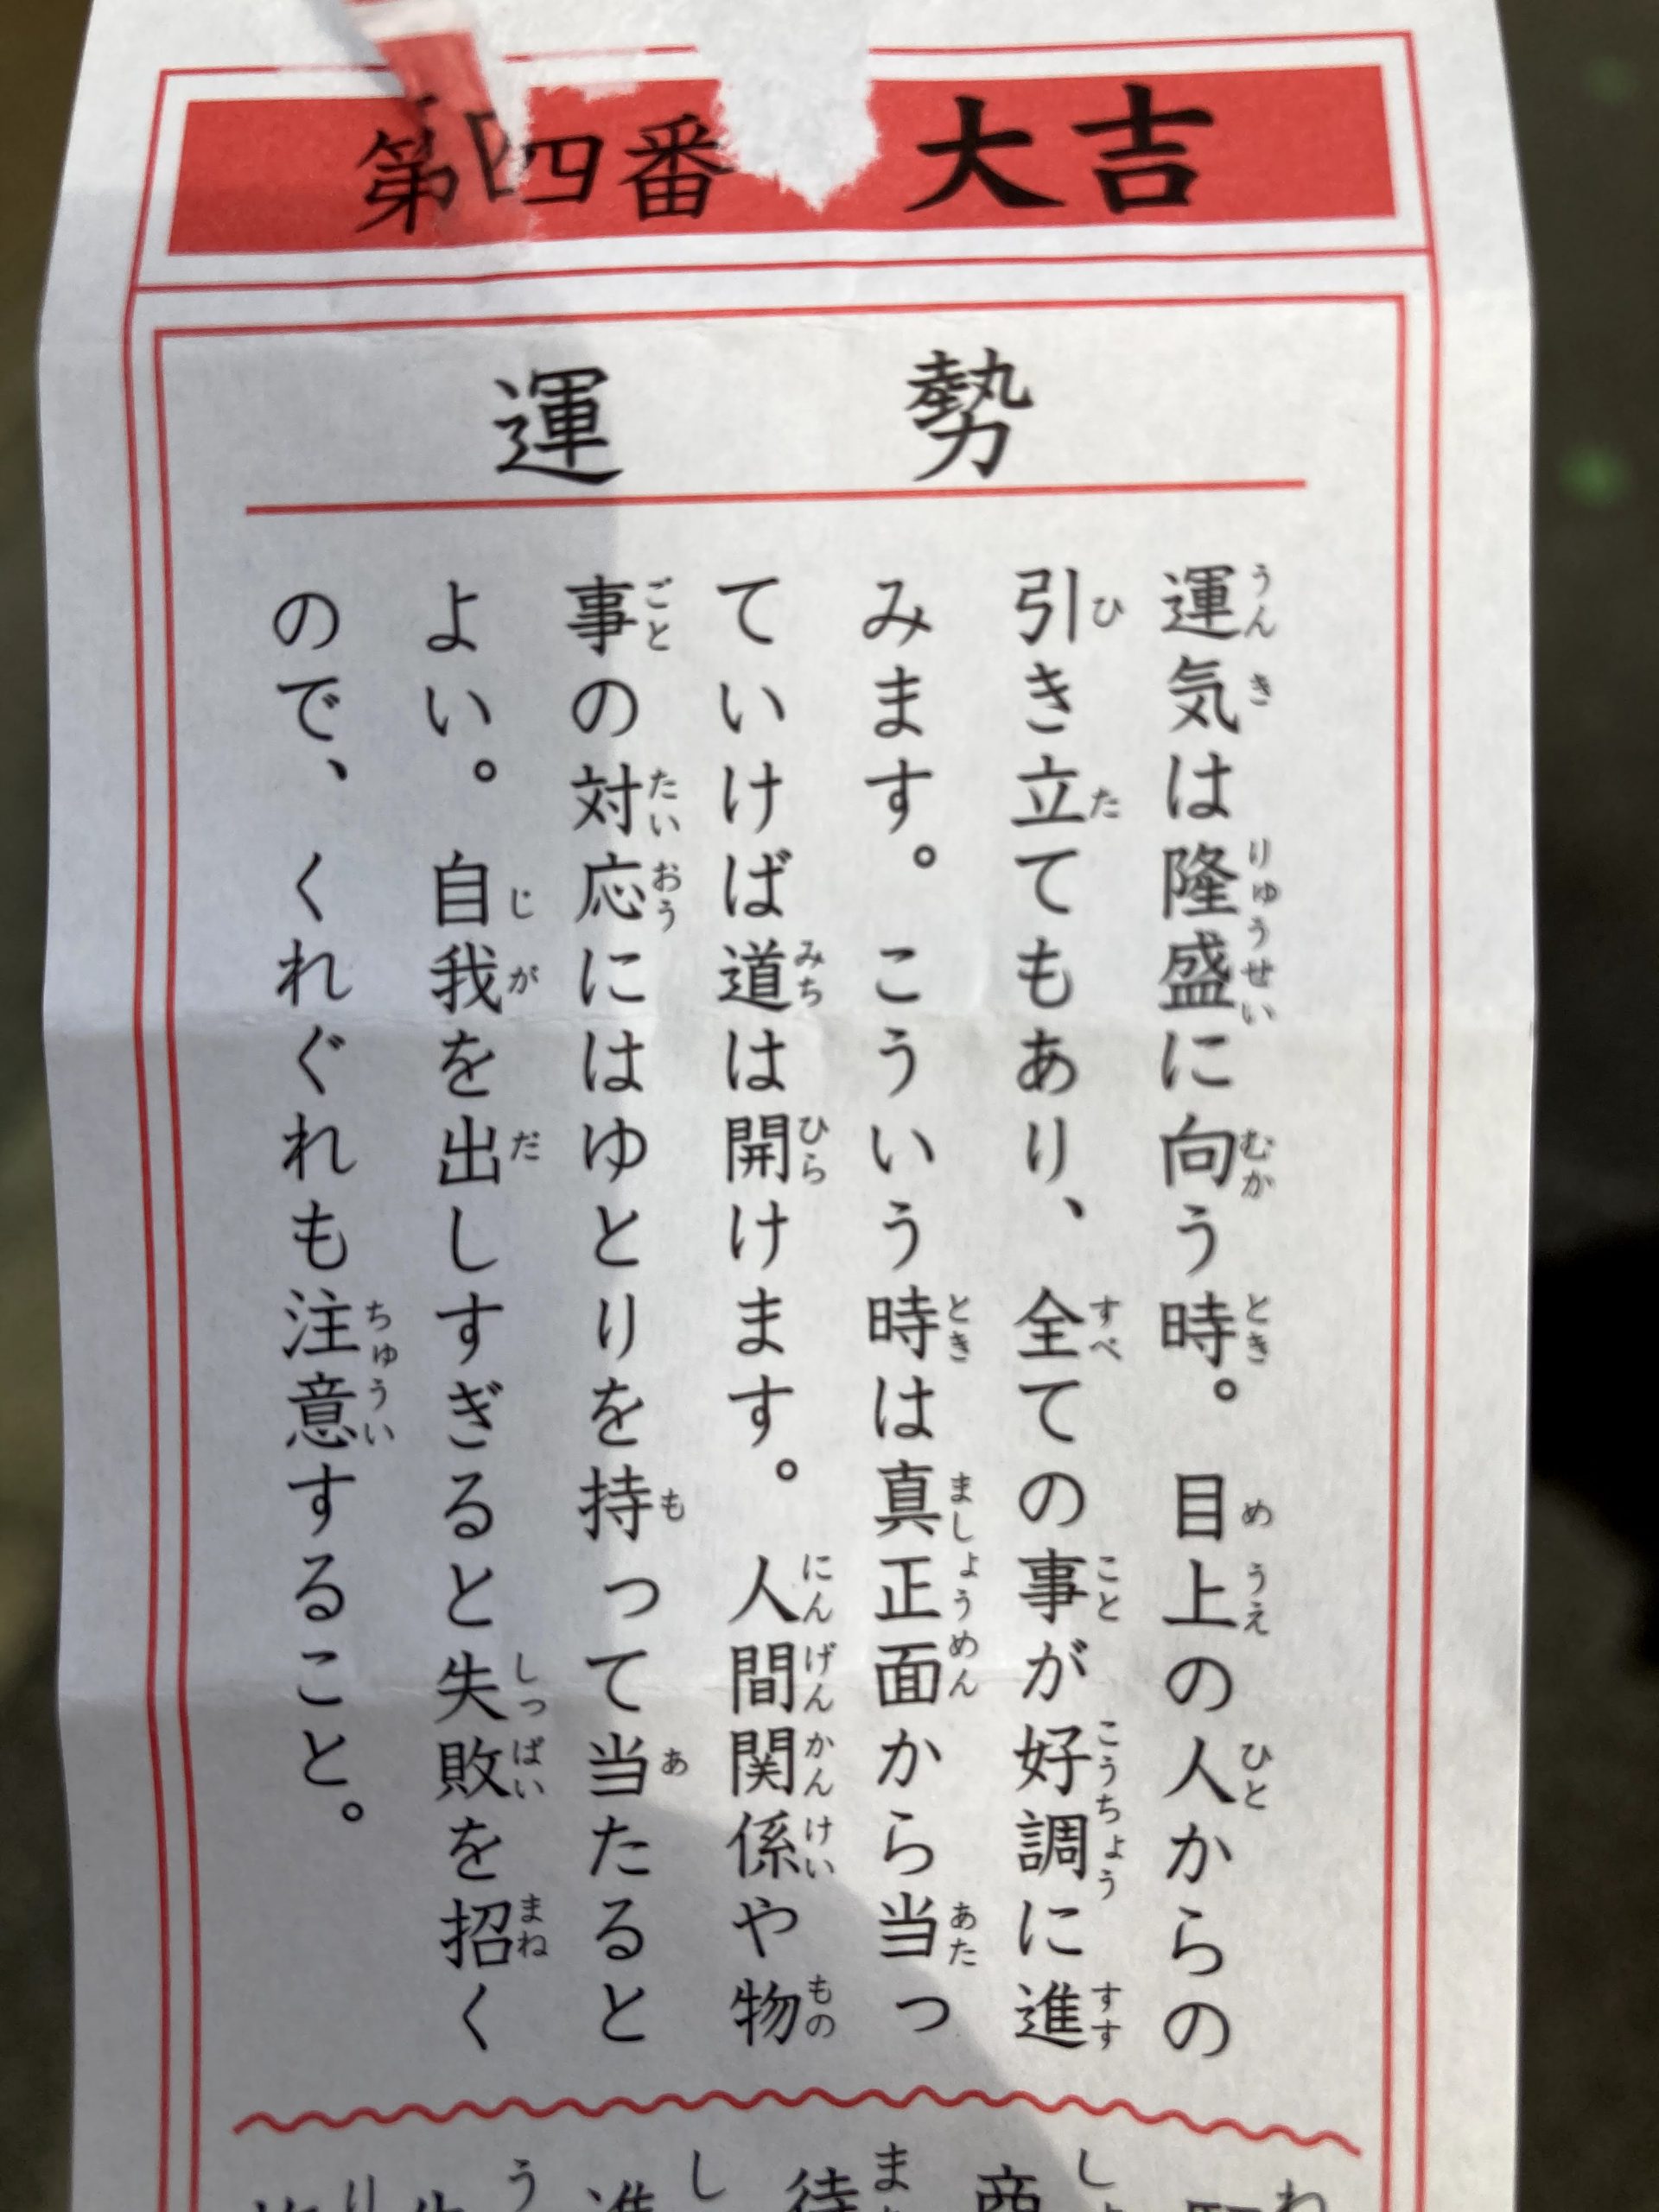 第四番 大吉
運勢
運気は隆盛に向う時。目上の人からの
引き立てもあり、全ての事が好調に進
みます。こういう時は真正面から当っ
ていけば道は開けます。人間関係や物
事の対応にはゆとりを持って当たると
よい。自我を出しすぎると失敗を招く
ので、くれぐれも注意すること。